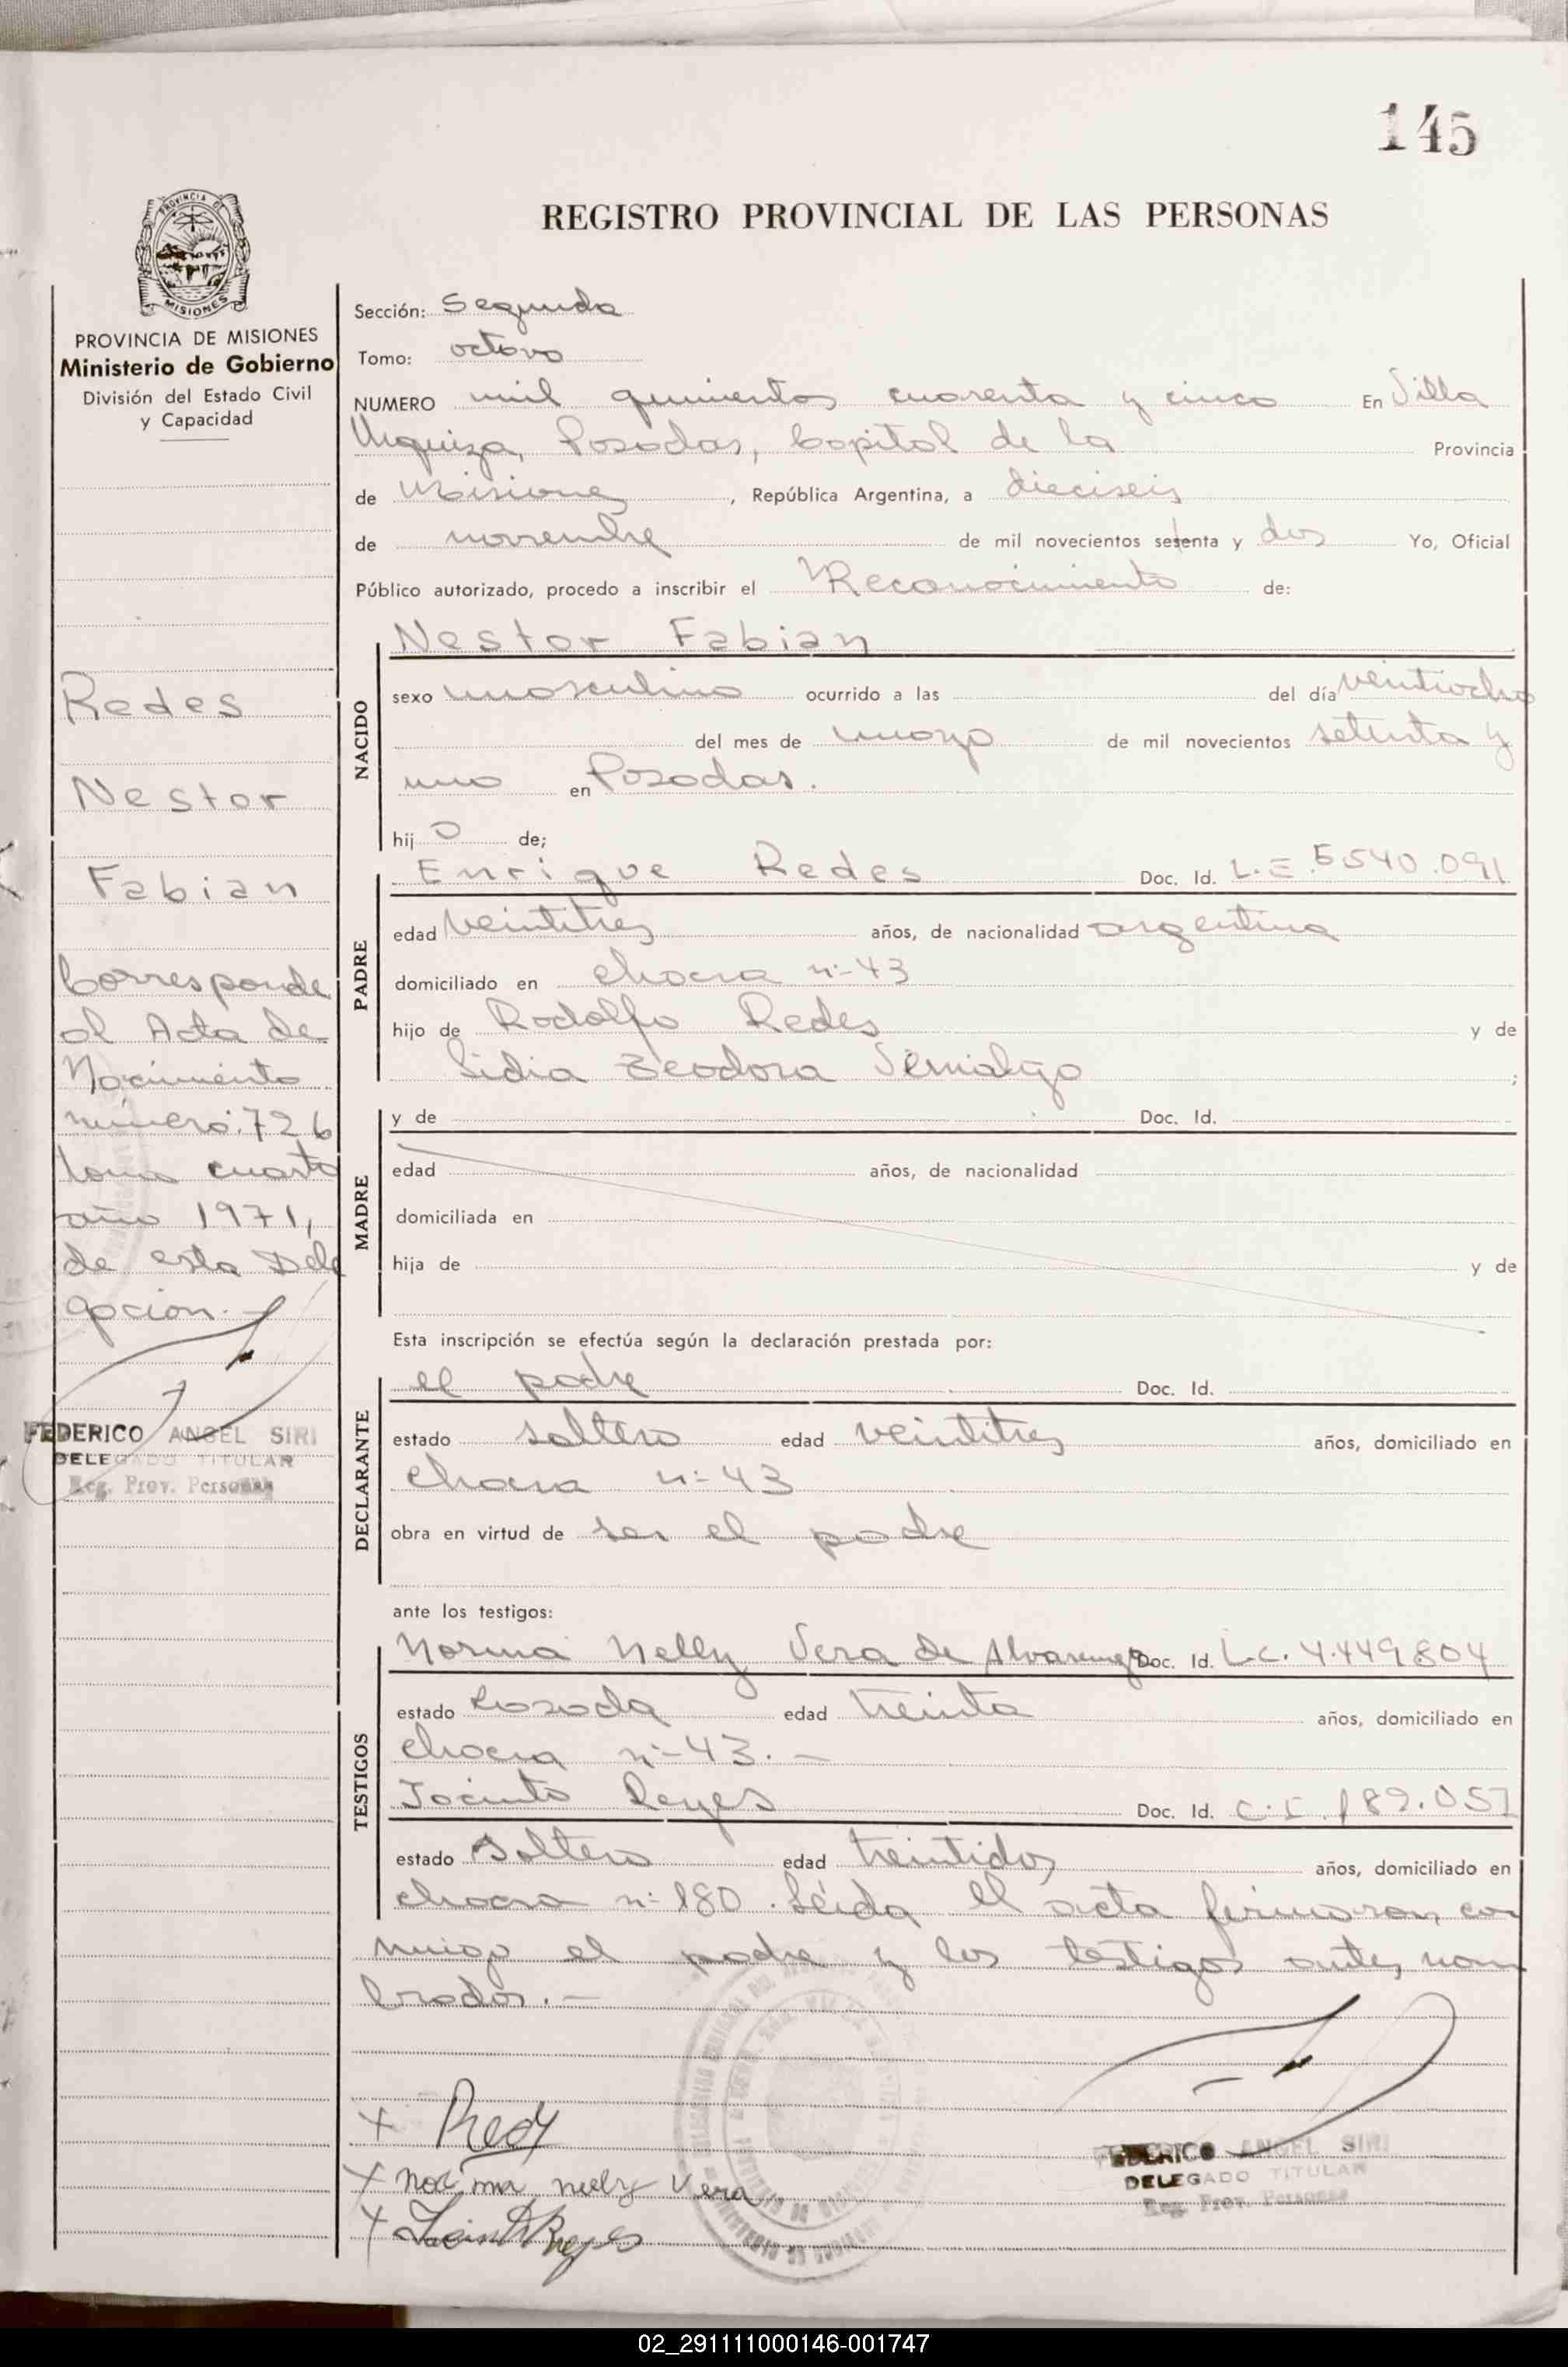 145
REGISTRO PROVINCIAL DE LAS PERSONAS
PROVINCIA DE MISIONES
Ministerio de Gobierno
División del Estado Civil
y Capacidad
Redes
Nestor
Fabian
Corresponde
al Acta de
Nacimiento
número: 726
tomo cuarto
año 1971,
de esta Dele
gacion.-
FEDERICO ANGEL SIRI
DELEGADO TITULAR
Reg. Prov. Personas
Sección: Segunda
Tomo: octavo
NUMERO mil quinientos cuarenta y cinco En Villa
Urquiza, Posadas, Capital de la Provincia
de Misiones, República Argentina, a dieciseis
de noviembre de mil novecientos setenta y dos Yo, Oficial
Público autorizado, procedo a inscribir el Reconocimiento de:
NACIDO
Nestor Fabian
sexo masculino ocurrido a las del día veintiocho
del mes de marzo de mil novecientos setenta y
uno en Posadas.
hijo de;
PADRE
Enrique Redes Doc. Id. L.E. 5.540.091
edad veintitres años, de nacionalidad argentina
domiciliado en chacra n:-43
hijo de Rodolfo Redes y de
Lidia Teodora Vernalgo ;
MADRE
y de Doc. Id.
edad años, de nacionalidad
domiciliada en
hija de y de
Esta inscripción se efectúa según la declaración prestada por:
DECLARANTE
el padre Doc. Id.
estado soltero edad veintitres años, domiciliado en
chacra n:-43
obra en virtud de ser el padre
ante los testigos:
TESTIGOS
Norma Nelly Vera de Alvarenga Doc. Id. L.C. 4.449.804
estado Casada edad treinta años, domiciliado en
chacra n:-43.-
Jacinto Reyes Doc. Id. C.I. 189.057
estado soltero edad treintidos años, domiciliado en
chacra n:-180. Leída el acta firmaron con
migo el padre y los testigos antes nom
brados.-
X Redes
X Norma nelly Vera
X Jacinto Reyes
FEDERICO ANGEL SIRI
DELEGADO TITULAR
Reg. Prov. Personas
02_291111000146-001747